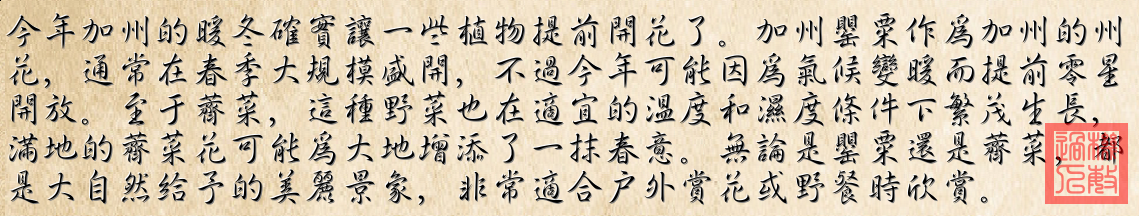 今年加州的暖冬確實讓一些植物提前開花了。加州罌粟作爲加州的州
花，通常在春季大規模盛開，不過今年可能因爲氣候變暖而提前零星
開放。至于薺菜，這種野菜也在適宜的溫度和濕度條件下繁茂生長，
滿地的薺菜花可能爲大地增添了一抹春意。無論是罌粟還是薺菜，都
是大自然給予的美麗景象，非常適合户外賞花或野餐時欣賞。